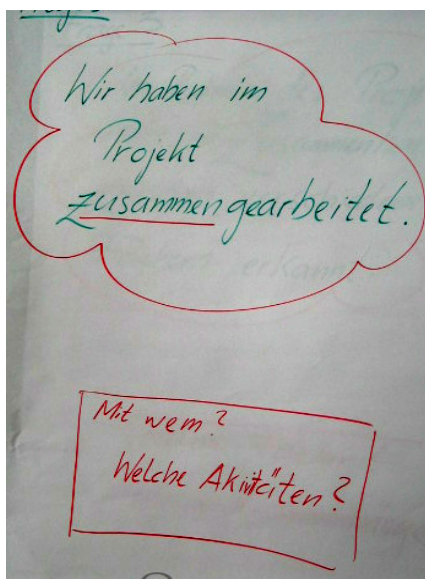 Wir haben im
Projekt
zusammengearbeitet.
Mit wem?
Welche Aktivitäten?